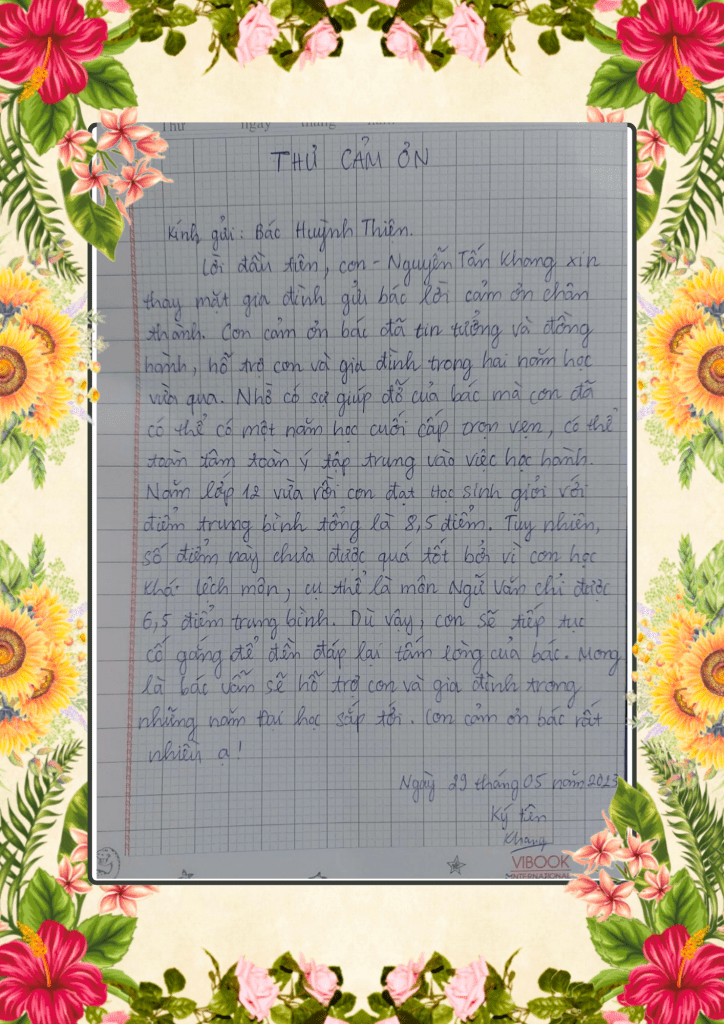 Thứ ngày tháng năm
THƯ CẢM ƠN
Kính gửi: Bác Huỳnh Thiên.
Lời đầu tiên, con - Nguyễn Tấn Khang xin
thay mặt gia đình gửi bác lời cảm ơn chân
thành. Con cảm ơn bác đã tin tưởng và đồng
hành, hỗ trợ con và gia đình trong hai năm học
vừa qua. Nhờ có sự giúp đỡ của bác mà con đã
có thể có một năm học cuối cấp trọn vẹn, có thể
toàn tâm toàn ý tập trung vào việc học hành.
Năm lớp 12 vừa rồi con đạt Học sinh giỏi với
điểm trung bình tổng là 8,5 điểm. Tuy nhiên,
số điểm này chưa được quá tốt bởi vì con học
khá lệch môn, cụ thể là môn Ngữ Văn chỉ được
6,5 điểm trung bình. Dù vậy, con sẽ tiếp tục
cố gắng để đền đáp lại tấm lòng của bác. Mong
là bác vẫn sẽ hỗ trợ con và gia đình trong
những năm Đại học sắp tới. Con cảm ơn bác rất
nhiều ạ!
Ngày 29 tháng 05 năm 2023
Ký tên
Khang
VIBOOK
INTERNATIONAL